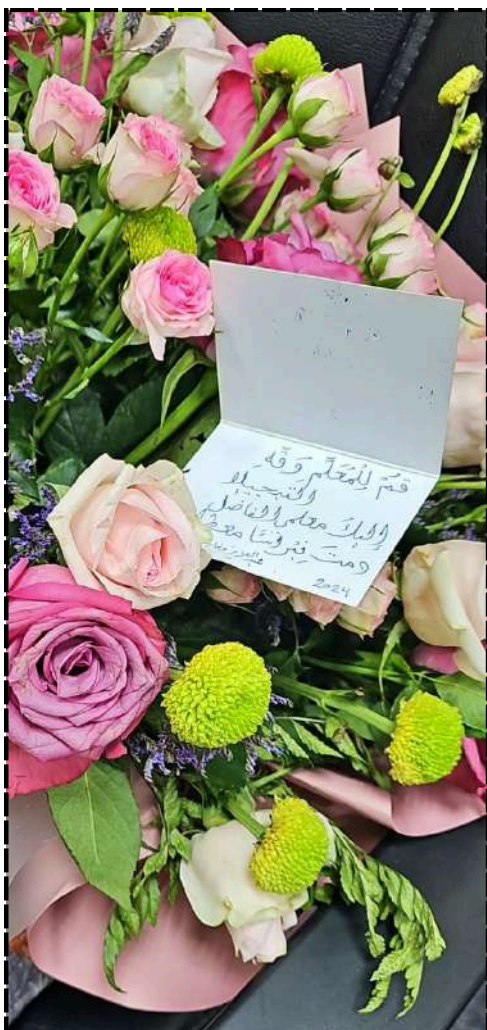 قُمْ لِلْمُعَلِّمِ وَفِّهِ
التبجيلا
إليك معلمي الفاضل
ودمت نبراسًا
2024